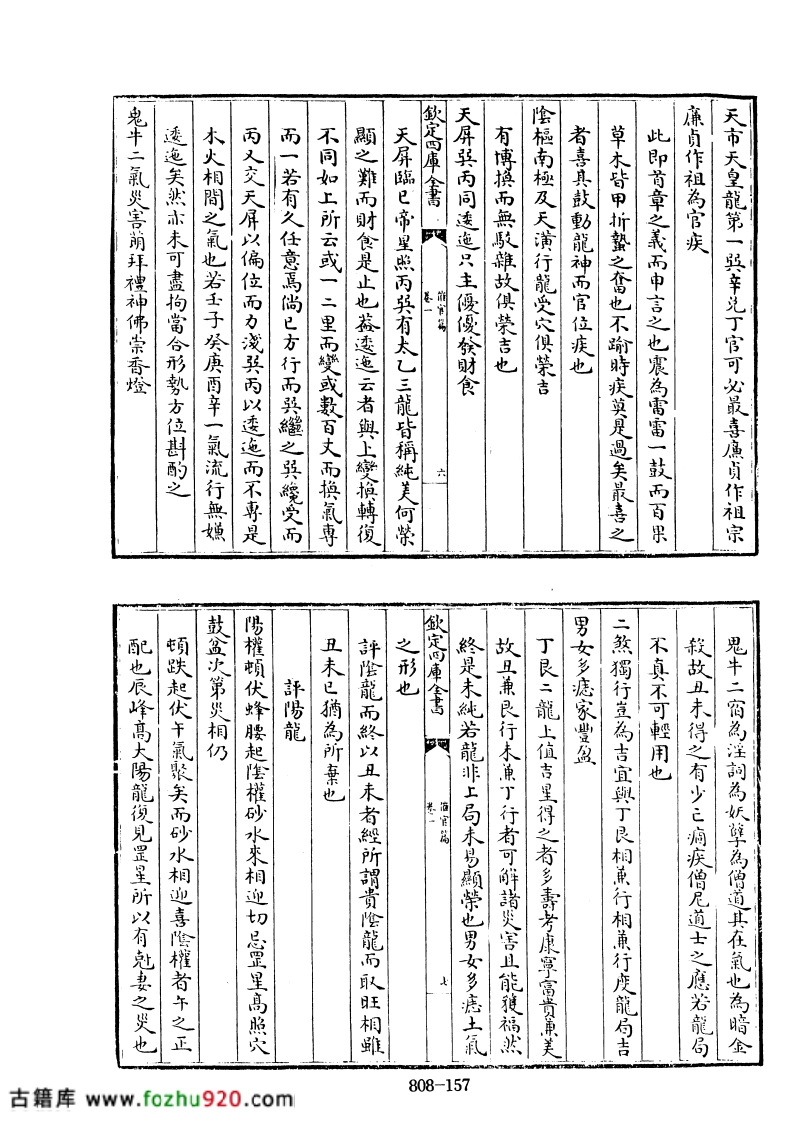 天市天皇龍第一巽辛兑丁官可必最喜廉貞作祖宗
廉貞作祖為官疾
此即首章之義而申言之也震為雷雷一鼓而百果
草木皆甲折蟄之奮也不踰時疾莫是過矣最喜之
者喜其鼓動龍神而官位疾也
陰樞南極及天潢行龍受穴俱榮吉
有博換而無駁雜故俱榮吉也
天屏巽丙同逶迤只主優優發財食
欽定四庫全書
催官篇
卷一
六
天屏臨巳帝星照丙巽有太乙三龍皆稱純美何榮
顯之難而財食是止也葢逶迤云者與上變換轉復
不同如上所云或一二里而變或數百丈而換氣專
而一若有久任意焉倘巳方行而巽繼之巽纔受而
丙又交天屏以偏位而力淺巽丙以逶迤而不專是
木火相間之氣也若壬子癸庚酉辛一氣流行無嫌
逶迤矣然亦未可盡拘當合形勢方位斟酌之
鬼牛二氣災害萠拜禮神佛崇香燈
鬼牛二宿為淫祠為妖孽為僧道其在氣也為暗金
殺故丑未得之有少亡痼疾僧尼道士之應若龍局
不真不可輕用也
二煞獨行豈為吉宜與丁艮相兼行相兼行度龍局吉
男女多痣家豐盈
丁艮二龍上值吉星得之者多壽考康寧富貴兼美
故丑兼艮行未兼丁行者可解諸災害且能獲福然
終是未純若龍非上局未易顯榮也男女多痣土氣
欽定四庫全書
催官篇
卷一
七
之形也
評陰龍而終以丑未者經所謂貴陰龍而取旺相雖
丑未已猶為所棄也
評陽龍
陽權頓伏蜂腰起陰權砂水來相迎切忌罡星高照穴
鼓盆次第災相仍
頓跌起伏午氣聚矣而砂水相迎喜陰權者午之正
配也辰峰高大陽龍復見罡星所以有尅妻之災也
808-157
古籍库 www.fozhu920.com